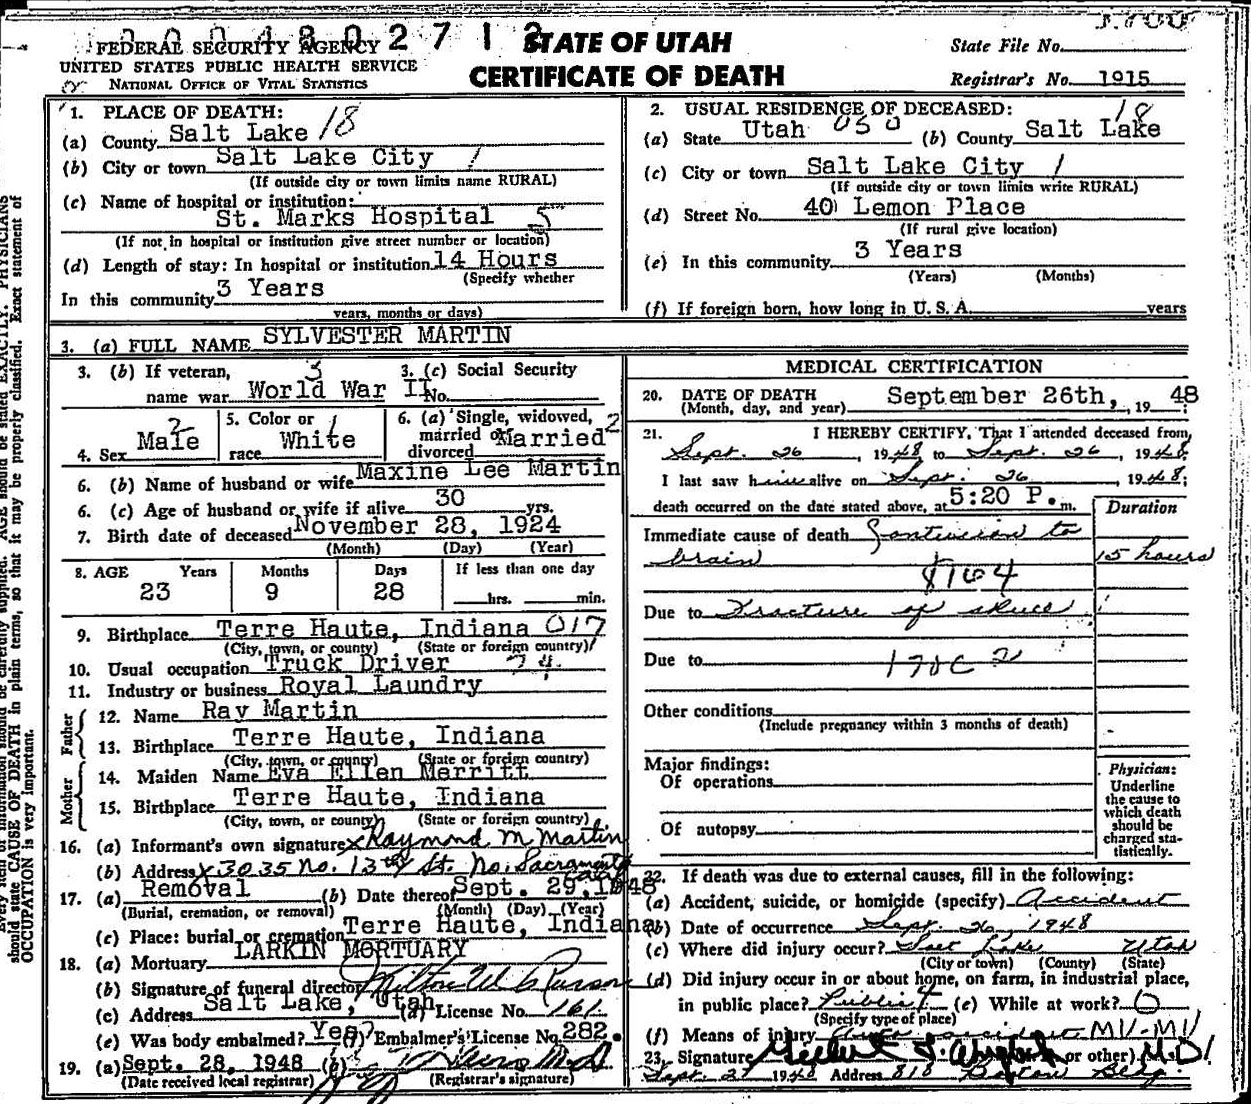 0 0 4 8 0 2 7 1 2
FEDERAL SECURITY AGENCY
UNITED STATES PUBLIC HEALTH SERVICE
NATIONAL OFFICE OF VITAL STATISTICS
STATE OF UTAH
CERTIFICATE OF DEATH
State File No.
Registrar's No. 1915
1. PLACE OF DEATH:
(a) County Salt Lake 18
(b) City or town Salt Lake City 1
(If outside city or town limits name RURAL)
(c) Name of hospital or institution:
St. Marks Hospital 5
(If not in hospital or institution give street number or location)
(d) Length of stay: In hospital or institution 14 Hours
(Specify whether
In this community 3 Years
years, months or days)
2. USUAL RESIDENCE OF DECEASED:
(a) State Utah 050 (b) County Salt Lake 18
(c) City or town Salt Lake City 1
(If outside city or town limits write RURAL)
(d) Street No. 40 Lemon Place
(If rural give location)
(e) In this community 3 Years
(Years) (Months)
(f) If foreign born, how long in U. S. A. years
3. (a) FULL NAME SYLVESTER MARTIN
3. (b) If veteran, 3
name war World War II
3. (c) Social Security
No.
4. Sex Male 2
5. Color or
race White 1
6. (a) Single, widowed,
married or
divorced Married 2
6. (b) Name of husband or wife Maxine Lee Martin
6. (c) Age of husband or wife if alive 30 yrs.
7. Birth date of deceased November 28, 1924
(Month) (Day) (Year)
8. AGE Years Months Days If less than one day
23 9 28 hrs. min.
9. Birthplace Terre Haute, Indiana 017
(City, town, or county) (State or foreign country)
10. Usual occupation Truck Driver
11. Industry or business Royal Laundry
Father
12. Name Ray Martin
13. Birthplace Terre Haute, Indiana
(City, town, or county) (State or foreign country)
Mother
14. Maiden Name Eva Ellen Merritt
15. Birthplace Terre Haute, Indiana
(City, town, or county) (State or foreign country)
16. (a) Informant's own signature x Raymond M Martin
(b) Address x 3035 No. 13th St. No. Sacramento
17. (a) Removal (b) Date thereof Sept. 29, 1948
(Burial, cremation, or removal) (Month) (Day) (Year)
(c) Place: burial or cremation Terre Haute, Indiana
18. (a) Mortuary LARKIN MORTUARY
(b) Signature of funeral director
(c) Address Salt Lake, Utah (d) License No. 161
(e) Was body embalmed? Yes (f) Embalmer's License No. 282.
19. (a) Sept. 28, 1948 (b)
(Date received local registrar) (Registrar's signature)
MEDICAL CERTIFICATION
20. DATE OF DEATH
(Month, day, and year) September 26th, , 19 48 ;
21. I HEREBY CERTIFY, That I attended deceased from
Sept. 26 , 1948, to Sept. 26 , 1948;
I last saw him alive on Sept. 26 , 1948;
death occurred on the date stated above, at 5:20 P. m.
Duration
Immediate cause of death Contusion to
brain 15 hours
8164
Due to Fracture of skull
Due to
Other conditions
(Include pregnancy within 3 months of death)
Major findings:
Of operations
Of autopsy
Physician:
Underline
the cause to
which death
should be
charged sta-
tistically.
22. If death was due to external causes, fill in the following:
(a) Accident, suicide, or homicide (specify) Accident
(b) Date of occurrence Sept. 26, 1948
(c) Where did injury occur? Salt Lake Utah
(City or town) (County) (State)
(d) Did injury occur in or about home, on farm, in industrial place,
in public place? Public 4 (e) While at work? 0
(Specify type of place)
(f) Means of injury Auto accident MV-MV
23. Signature or other) M.D.
Sept. 27 1948 Address 818 Boston Bldg.
AGE should be stated EXACTLY. PHYSICIANS
should state CAUSE OF DEATH in plain terms, so that it may be properly classified. Exact statement of
OCCUPATION is very important.